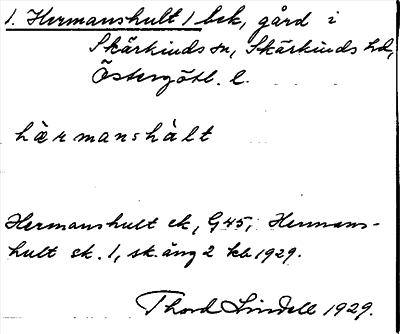 1. Hermanshult 1 bck, gård i
Skärkinds sn, Skärkinds hd,
Östergötl. l.
hàrmanshàlt
Hermanshult ek, G45; Hermans-
hult sk. 1, sk. äng 2 kb 1929.
Thord Lindell 1929.